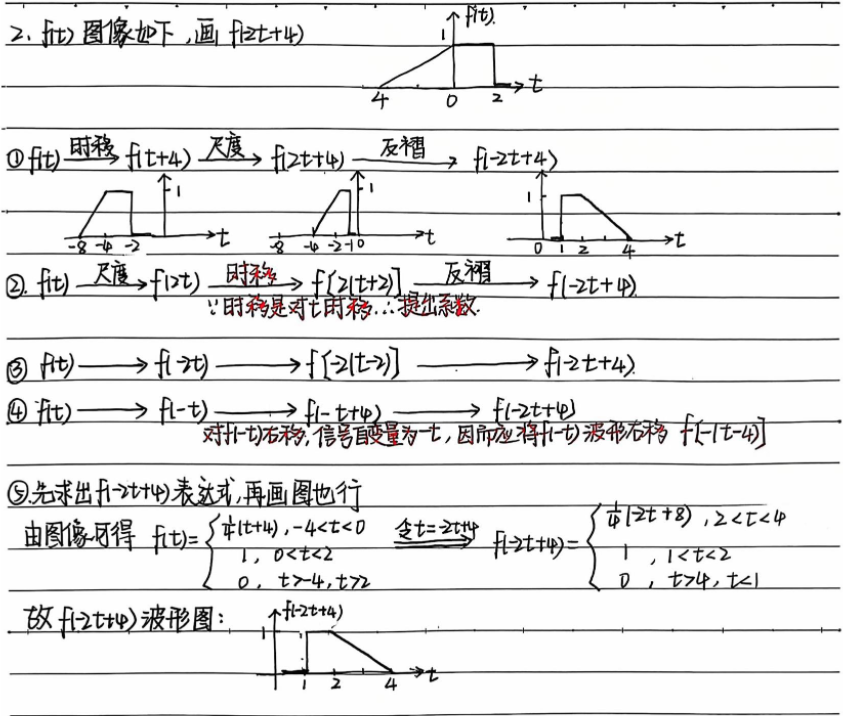 2. f(t) 图像如下,画 f(-2t+4)
f(t)
1
4 0 2 t
① f(t) 时移→ f(t+4) 尺度→ f(2t+4) 反褶→ f(-2t+4)
1 1 1
-8 -4 -2 t -8 -4 -2 -1 0 t 0 1 2 4 t
②. f(t) 尺度→ f(2t) 时移→ f[2(t+2)] 反褶→ f(-2t+4)
∵时移是对t时移.∴提出系数.
③ f(t) → f(-2t) → f[-2(t-2)] → f(-2t+4)
④ f(t) → f(-t) → f(-t+4) → f(-2t+4)
对f(-t)右移,信号自变量为-t,因而应将f(-t)波形右移 f[-(t-4)]
⑤.先求出f(-2t+4)表达式,再画图也行
由图像可得 f(t)={ 1/4(t+4), -4<t<0 令t=-2t+4⇒ f(-2t+4)={ 1/4(-2t+8), 2<t<4
1, 0<t<2 1, 1<t<2
0, t>-4, t>2 0, t>4, t<1
故f(-2t+4)波形图:
f(-2t+4)
1
1 2 4 t